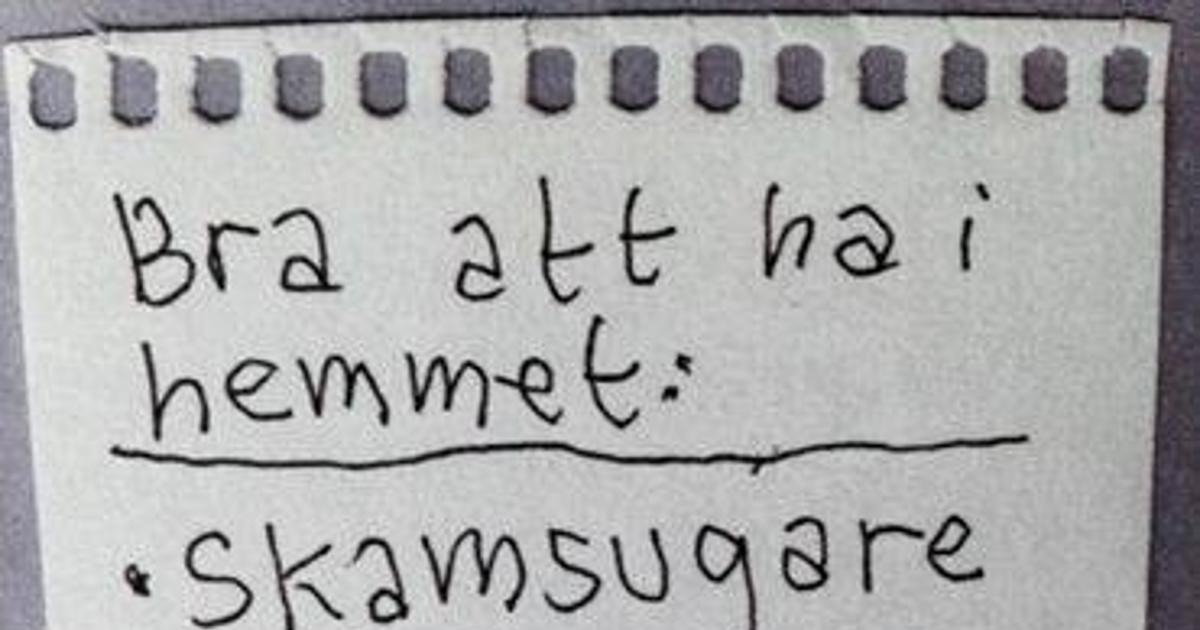 Bra att ha i
hemmet:
• Skamsugare